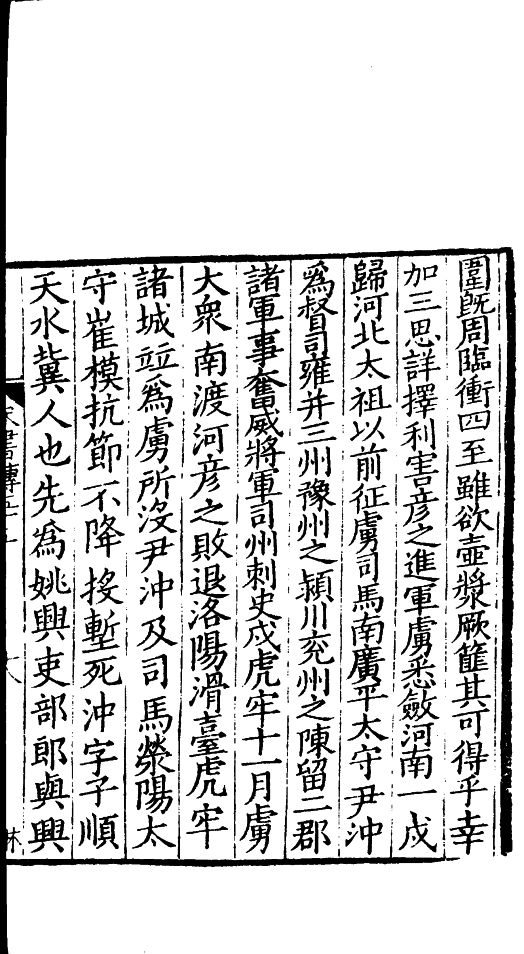 圍既周臨衝四至雖欲壺漿厥篚其可得乎幸
加三思詳擇利害彦之進軍虜悉斂河南一戍
歸河北太祖以前征虜司馬南廣平太守尹沖
爲督司雍并三州豫州之潁川兖州之陳留二郡
諸軍事奮威將軍司州刺史戍虎牢十一月虜
大衆南渡河彦之敗退洛陽滑臺虎牢
諸城竝爲虜所沒尹沖及司馬滎陽太
守崔模抗節不降投塹死沖字子順
天水冀人也先爲姚興吏部郎與興
宋書傳五十
六
林